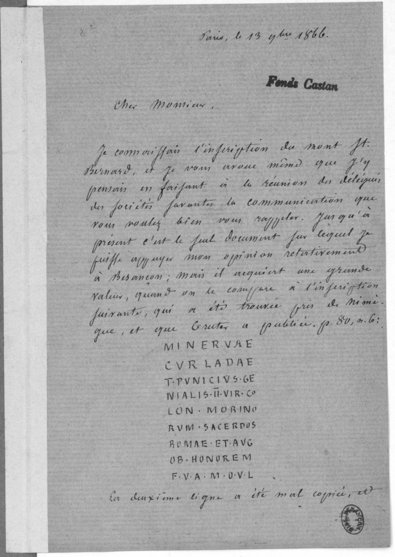 Paris, le 13 9bre 1866.
Fonds Castan
Cher Monsieur,
Je connaissais l'inscription du mont St.
Bernard, et je vous avoue même que j'y
pensais en faisant à la réunion des délégués
des sociétés savantes la communication que
vous voulez bien vous rappeler. Jusqu'à
présent c'est le seul document sur lequel je
puisse appuyer mon opinion relativement
à Besançon; mais il acquiert une grande
valeur, quand on le compare à l'inscription
suivante, qui a été trouvée près de Nimè-
gue, et que Gruter a publiée. p. 80, n. 6:
MINERVAE
CVR LADAE
T·PVNICIVS·GE
NIALIS·II·VIR·CO
LON·MORINO
RVM·SACERDOS
ROMAE·ET·AVG
OB·HONOREM
F·V·A·M·O·V·L
La deuxième ligne a été mal copiée, et